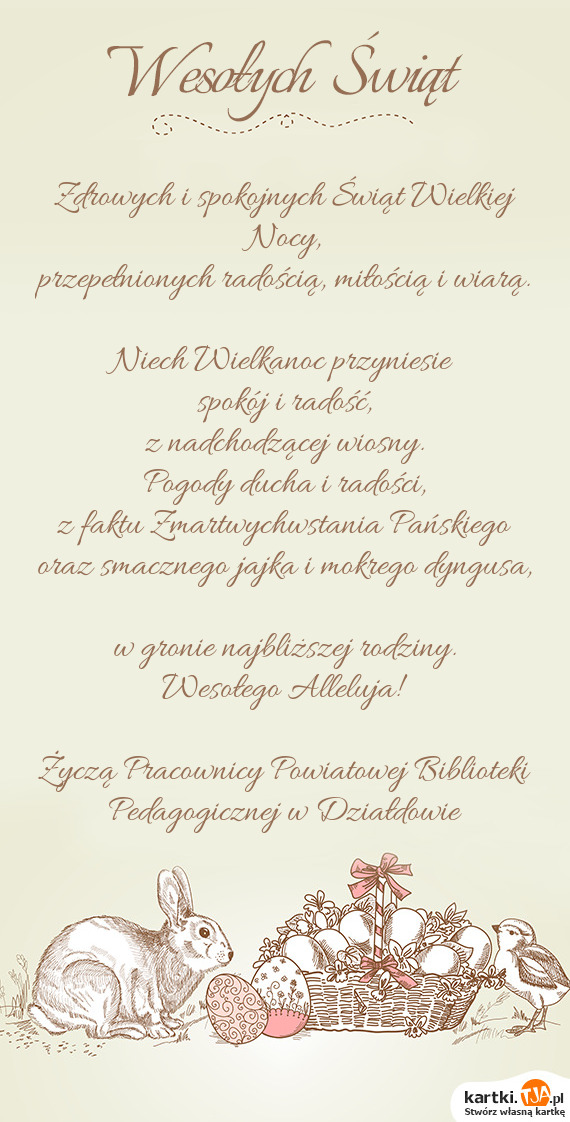 Wesołych Świąt
Zdrowych i spokojnych Świąt Wielkiej
Nocy,
przepełnionych radością, miłością i wiarą.
Niech Wielkanoc przyniesie
spokój i radość,
z nadchodzącej wiosny.
Pogody ducha i radości,
z faktu Zmartwychwstania Pańskiego
oraz smacznego jajka i mokrego dyngusa,
w gronie najbliższej rodziny.
Wesołego Alleluja!
Życzą Pracownicy Powiatowej Biblioteki
Pedagogicznej w Działdowie
kartki.TJA.pl
Stwórz własną kartkę